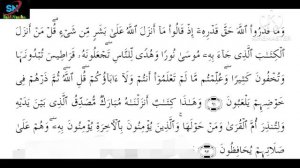 SN
وَمَا قَدَرُوا۟ ٱللَّهَ حَقَّ قَدْرِهِۦٓ إِذْ قَالُوا۟ مَآ أَنزَلَ ٱللَّهُ عَلَىٰ بَشَرٍ مِّن شَىْءٍ ۗ قُلْ مَنْ أَنزَلَ
ٱلْكِتَٰبَ ٱلَّذِى جَآءَ بِهِۦ مُوسَىٰ نُورًا وَهُدًى لِّلنَّاسِ ۖ تَجْعَلُونَهُۥ قَرَاطِيسَ تُبْدُونَهَا
وَتُخْفُونَ كَثِيرًا ۖ وَعُلِّمْتُم مَّا لَمْ تَعْلَمُوٓا۟ أَنتُمْ وَلَآ ءَابَآؤُكُمْ ۖ قُلِ ٱللَّهُ ۖ ثُمَّ ذَرْهُمْ فِى
خَوْضِهِمْ يَلْعَبُونَ ۝٩١ وَهَٰذَا كِتَٰبٌ أَنزَلْنَٰهُ مُبَارَكٌ مُّصَدِّقُ ٱلَّذِى بَيْنَ يَدَيْهِ
وَلِتُنذِرَ أُمَّ ٱلْقُرَىٰ وَمَنْ حَوْلَهَا ۚ وَٱلَّذِينَ يُؤْمِنُونَ بِٱلْءَاخِرَةِ يُؤْمِنُونَ بِهِۦ ۖ وَهُمْ عَلَىٰ
صَلَاتِهِمْ يُحَافِظُونَ ۝٩٢